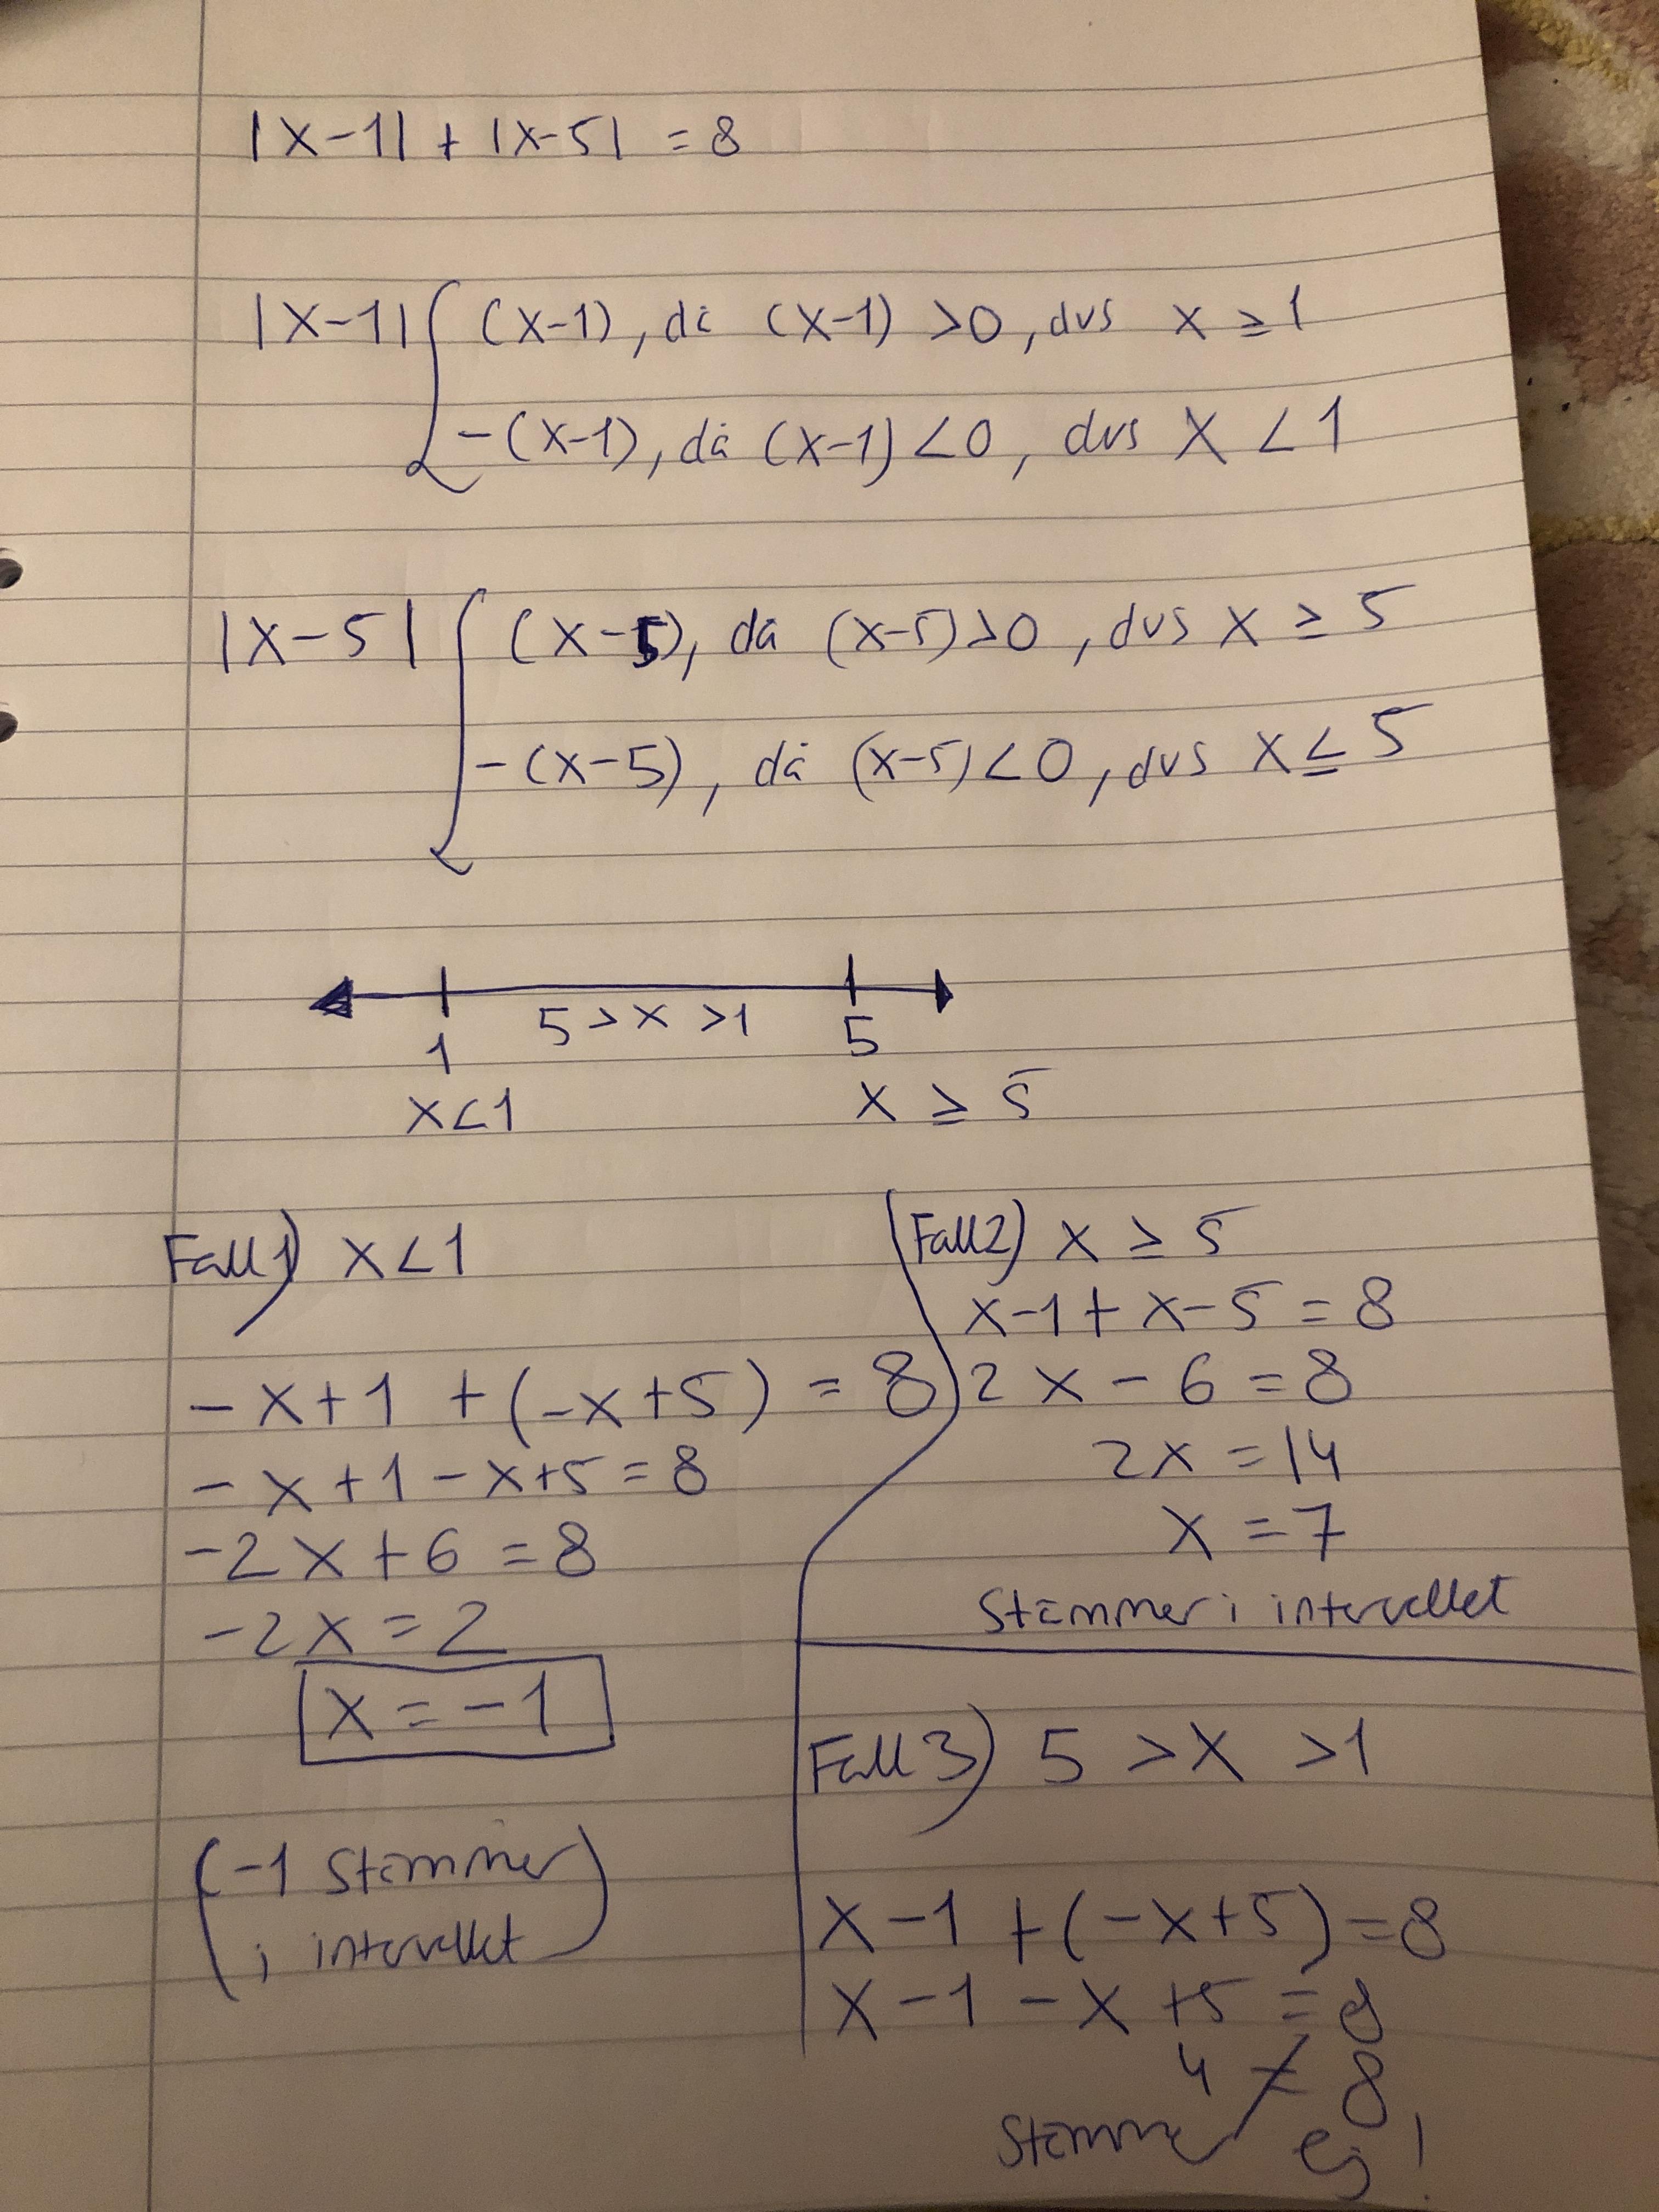 |x-1| + |x-5| = 8
|x-1| { (x-1), då (x-1) >0, dvs x ≥ 1
-(x-1), då (x-1) <0, dvs x < 1
|x-5| { (x-5), då (x-5)>0, dvs x ≥ 5
-(x-5), då (x-5)<0, dvs x ≤ 5
1 5 > x > 1 5
x<1 x ≥ 5
Fall 1) x<1
-x+1 + (-x+5) = 8
-x+1-x+5 = 8
-2x+6 = 8
-2x = 2
x = -1
(-1 stämmer
i intervallet)
Fall 2) x ≥ 5
x-1+x-5 = 8
2x-6 = 8
2x = 14
x = 7
Stämmer i intervallet
Fall 3) 5 > x > 1
x-1+(-x+5) = 8
x-1-x+5 = 8
4 ≠ 8
Stämmer ej!